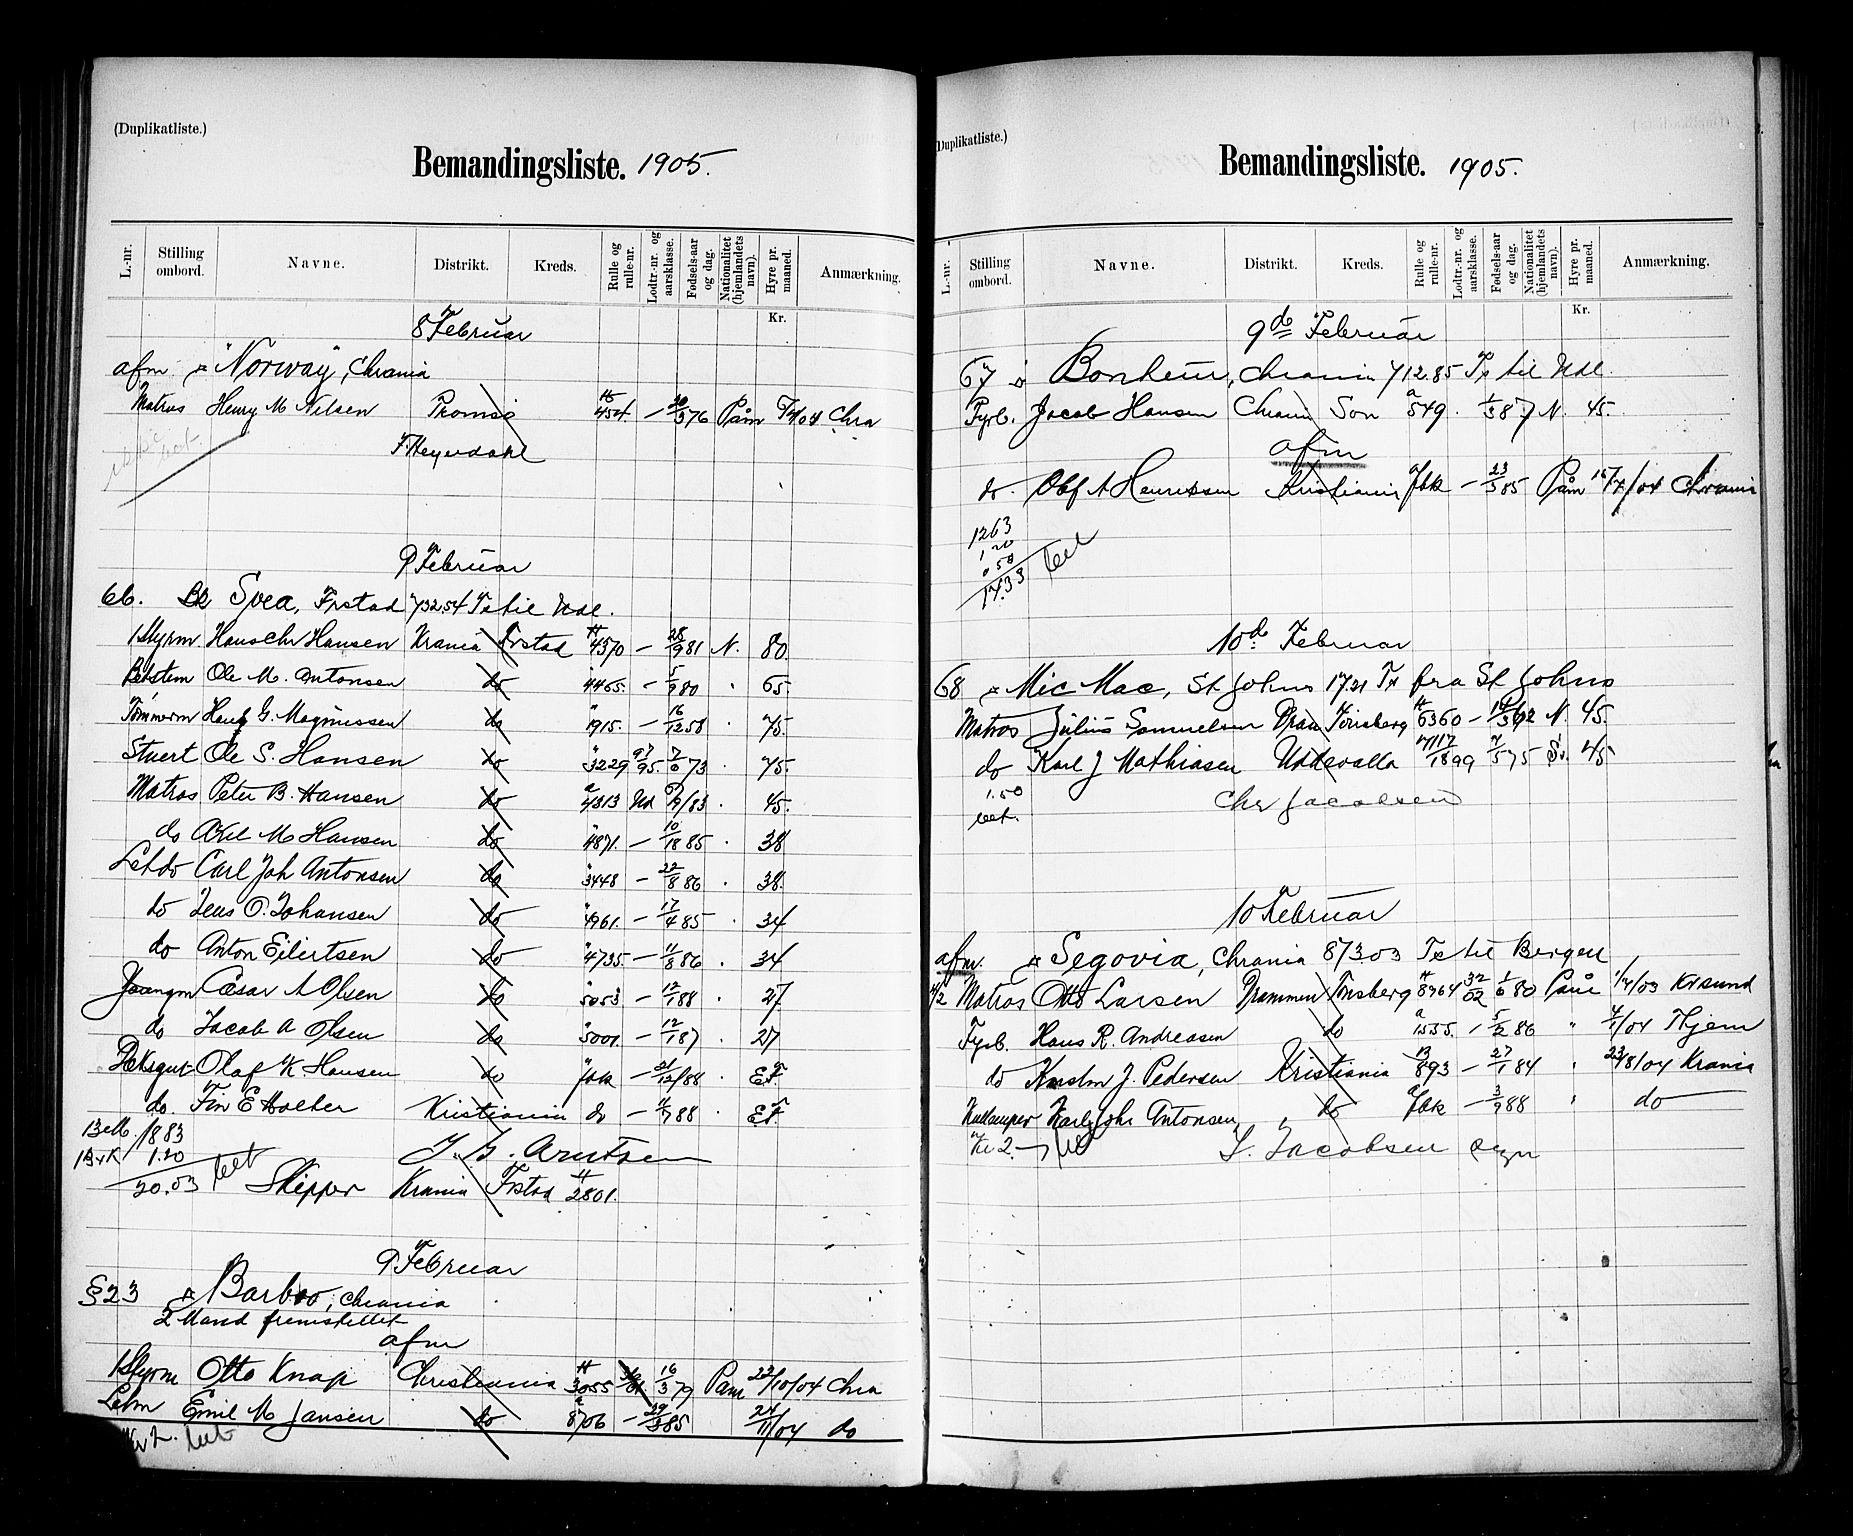 (Duplikatliste.)
Bemandingsliste. 1905.
L.-nr. Stilling ombord. Navne. Distrikt. Kreds. Rulle og rulle-nr. Lodtr.-nr. og aarsklasse. Fødsels-aar og dag. Nationalitet (hjemlandets navn). Hyre pr. maaned. Anmærkning.
Kr.
8 Februar
afm. "Norway", Chrania
Matros Henry M Nilsen Tromsø 454 - 576 Påm 04 Chra
F. Heyerdahl
9 Februar
66. Bk Svea, Frstad 73254 Ts til Udl.
1 Styrm. Hans Chr Hansen Krania Frstad 4370 - 28/9 81 N. 80.
Bdstm Ole M. Antonsen do 4465. - 5/9 80 . 65.
Tømmerm Hans G. Magnussen do 1915. - 16/12 58 . 75.
Stuert Ole S. Hansen do 3229 97/95. 7/6 73 . 75.
Matros Peter B. Hansen do 4313 Ud /83 . 45.
do Axel M Hansen do 4871. - 85 . 38
Letdo Carl Joh Antonsen do 3448 - 22/8 86 . 38.
do Jens O. Johansen do 4961. - 17/4 85 . 34
do Anton Eilertsen do 4735. - 11/8 86 . 34
Jungm Cæsar A Olsen do 5053 - 12/1 88 . 27
do Jacob A Olsen do 5001. - 12/1 87 . 27
Dæksgut Olaf K. Hansen do fbk - 21/12/88 . EF.
do. Fin E Holter Kristiania do - 88 . EF.
13 M. 18.83
1.20
20.03 bet
J. G. Arntsen
Skipper Krania Frstad 2801.
9 Februar
§23 Barbro, Chrania
2 Mand fremstillet
afm
1 Styrm Otto Knap Christiania 3055 16/3 79 Påm 22/10/04 Chra
Letm Emil M Jansen do 8706 - 29/3 85 24/11/04 do
Kr 2. bet
Duplikatliste.)
Bemandingsliste. 1905.
L.-nr. Stilling ombord. Navne. Distrikt. Kreds. Rulle og rulle-nr. Lodtr.-nr. og aarsklasse. Fødsels-aar og dag. Nationalitet (hjemlandets navn). Hyre pr. maaned. Anmærkning.
Kr.
9de Februar
67 Bonheur, Chrania 712.85 Ts til Udl.
Fyrb. Jacob Hansen Chrania Son 549. 1/3 87 N. 45.
afm
do. Olaf A Henriksen Kristiania fbk - 23/3 85 Påm /04 Chrania
1263
1 20
0 50
14.33 bet
10de Februar
68 Mic Mac, St Johns 1721 Ts fra St Johns
Matros Julius Samuelsen Dram Tønsberg 6360 - 62 N. 45.
do Karl J Mathiasen Uddevalla 1899 575 Sv. 45
1.50
bet.
Chr Jacobsen
10 Februar
afm. Segovia, Chrania 873.03 Ts til Bergen
Matros Otto Larsen Drammen Tønsberg 8764 32/02 1/6 80 Påm /03 Krsund
Fyrb. Hans R. Andreasen do 1535. - 5/2 86 " /04 Hjem
do Karstin J. Pedersen Kristiania 893 - 27/1 84 " 23/8/04 Krania
Kullemper Karl Johs Antonsen do fbk - 3/9 88 " do
Kr 2.- bet
S. Jacobsen